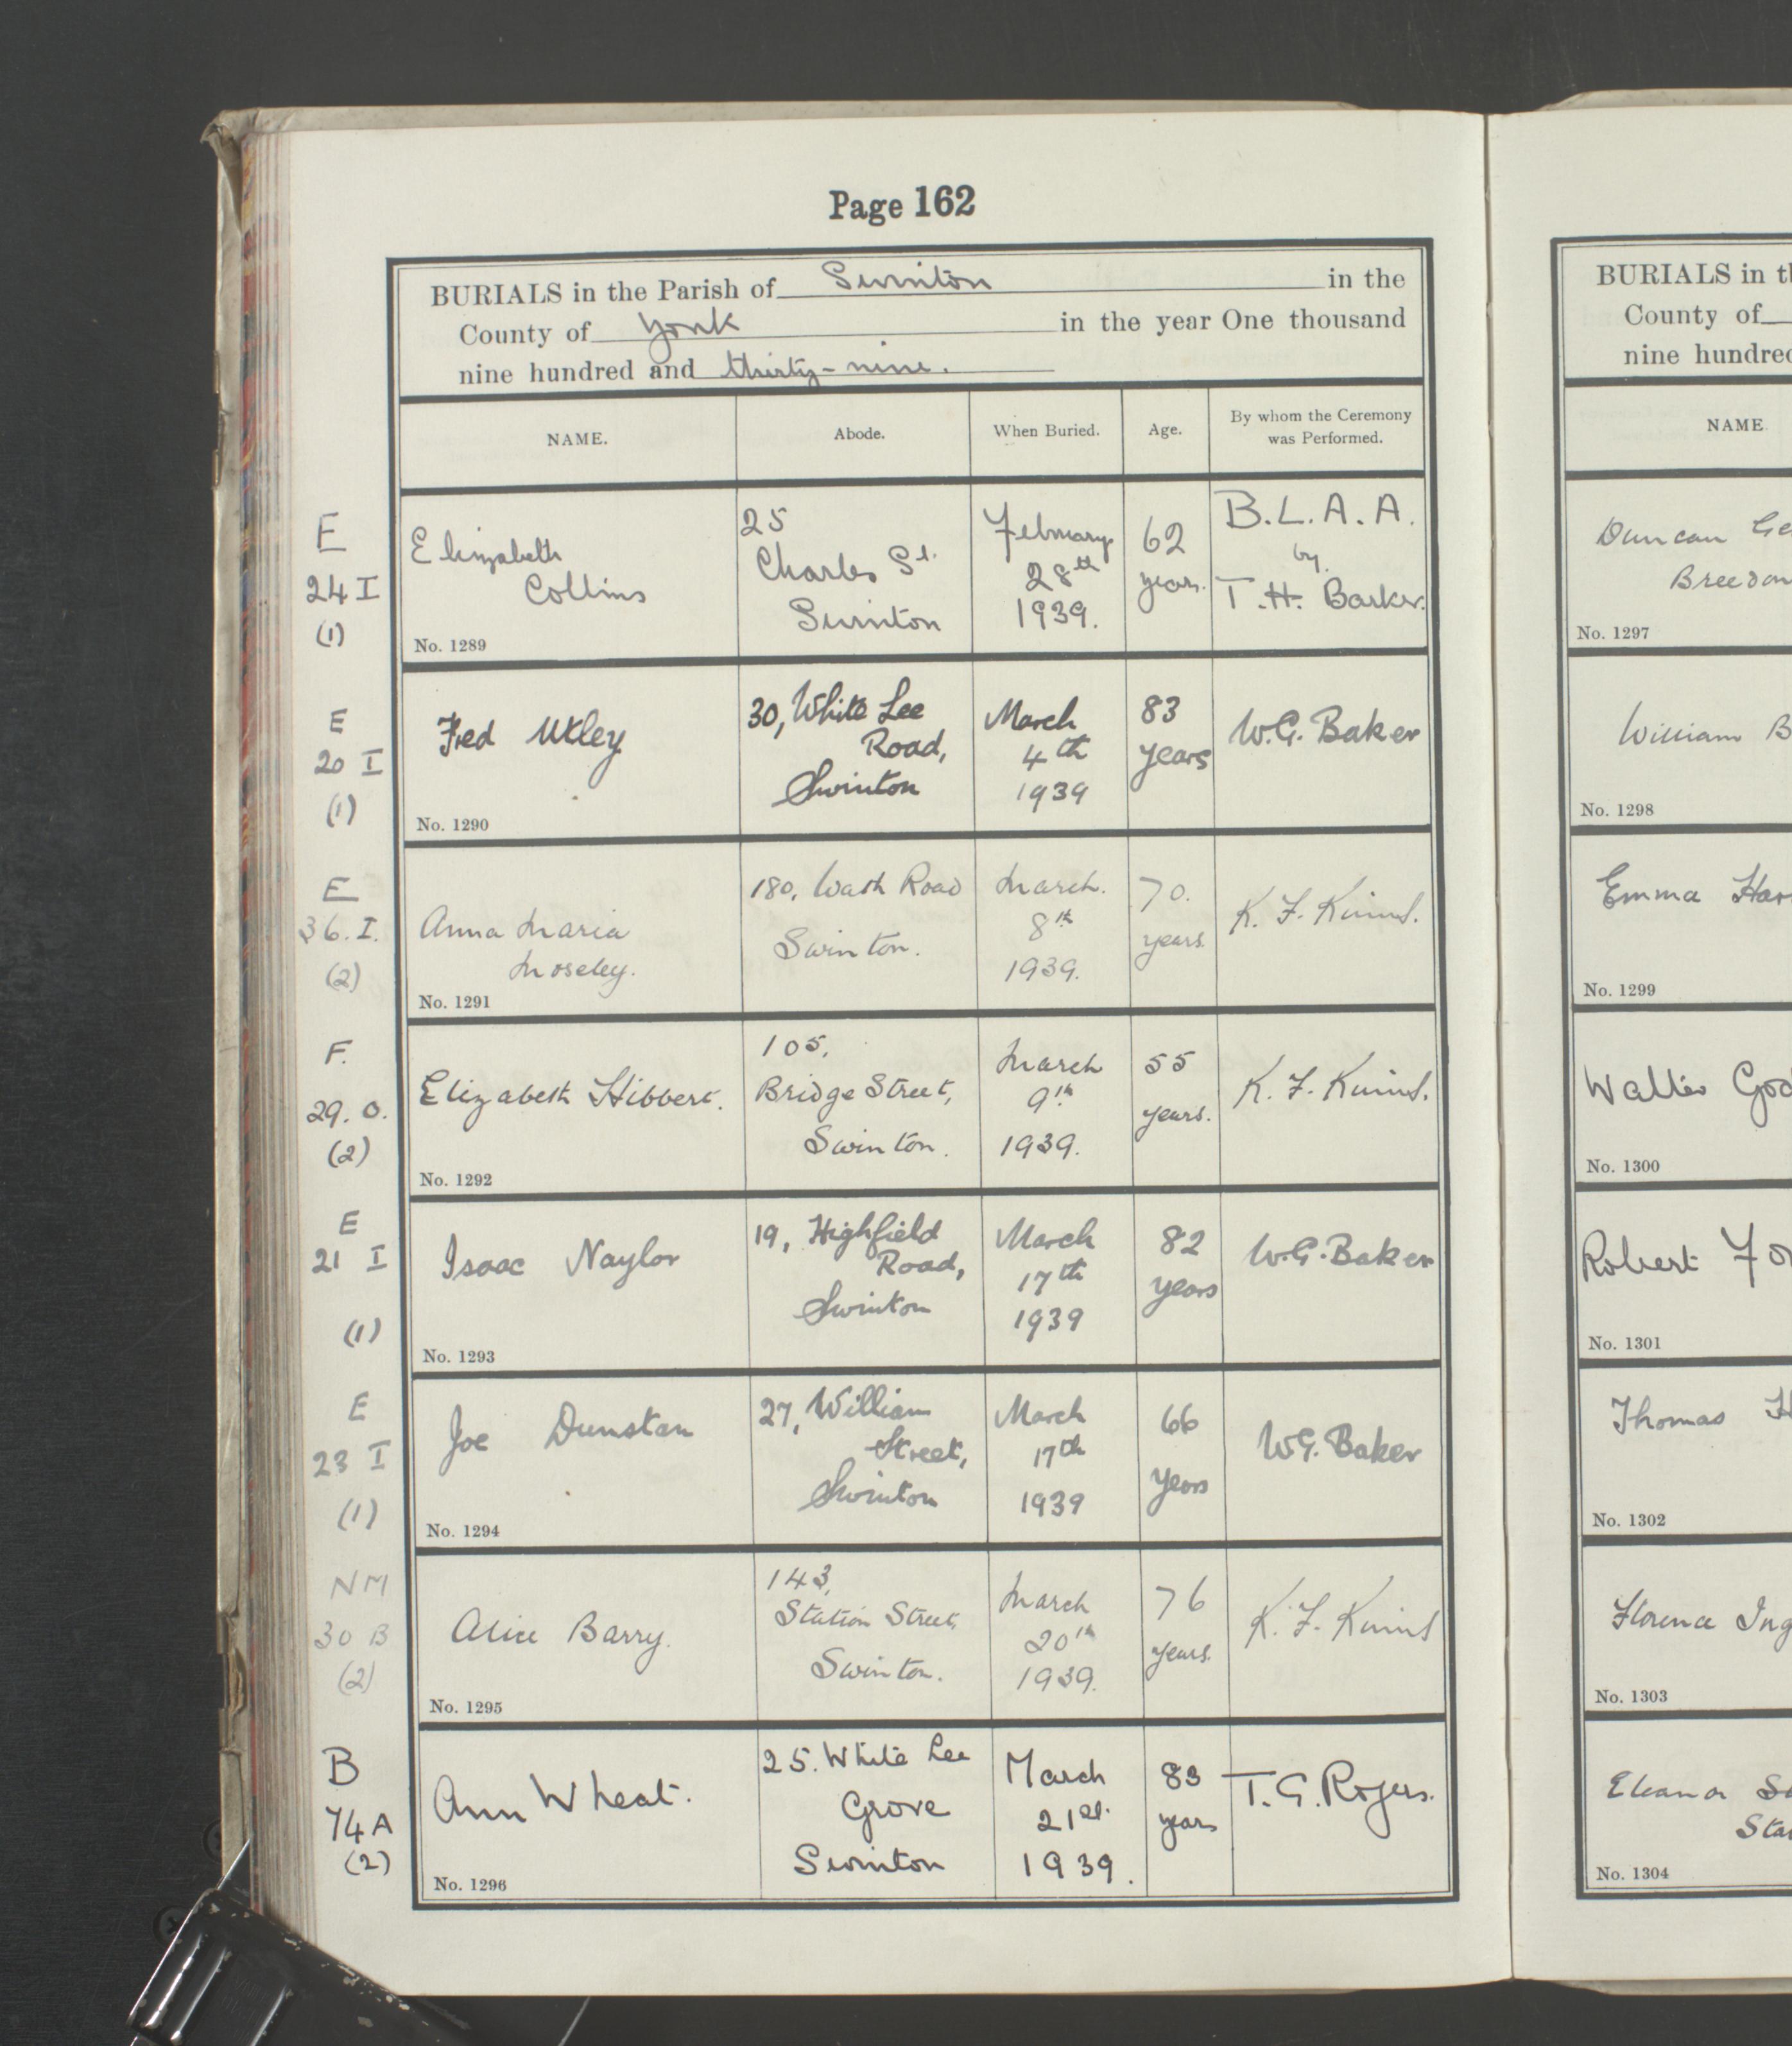 Page 162
BURIALS in the Parish of Swinton in the
County of York in the year One thousand
nine hundred and thirty-nine.
NAME. Abode. When Buried. Age. By whom the Ceremony
was Performed.
E
24 I
(1)
Elizabeth
Collins
No. 1289
25
Charles St.
Swinton
February
28th
1939.
62
years.
B.L.A.A.
by.
T.H. Barker.
E
20 I
(1)
Fred Utley
No. 1290
30, White Lee
Road,
Swinton
March
4th
1939
83
years
W.G. Baker
E
36. I.
(2)
Anna Maria
Moseley.
No. 1291
180, Wath Road
Swinton.
March.
8th
1939.
70.
years.
K. F.
F.
29. O.
(2)
Elizabeth Hibbert.
No. 1292
105,
Bridge Street,
Swinton.
March
9th
1939.
55
years.
K. F.
E
21 I
(1)
Isaac Naylor
No. 1293
19, Highfield
Road,
Swinton
March
17th
1939
82
years
W.G. Baker
E
23 I
(1)
Joe Dunstan
No. 1294
27, William
Street,
Swinton
March
17th
1939
66
years
W.G. Baker
NM
30 B
(2)
Alice Barry.
No. 1295
143,
Station Street,
Swinton.
March
20th
1939.
76
years.
K. F.
B
74 A
(2)
Ann Wheat.
No. 1296
25. White Lee
Grove
Swinton
March
21st.
1939.
83
years
T. G. Rogers.
BURIALS in th
County of
nine hundred
NAME
Duncan Ge
Breedon
No. 1297
William B
No. 1298
Emma Har
No. 1299
Walter God
No. 1300
Robert For
No. 1301
Thomas H
No. 1302
Florence Ing
No. 1303
Eleanor
Sta
No. 1304